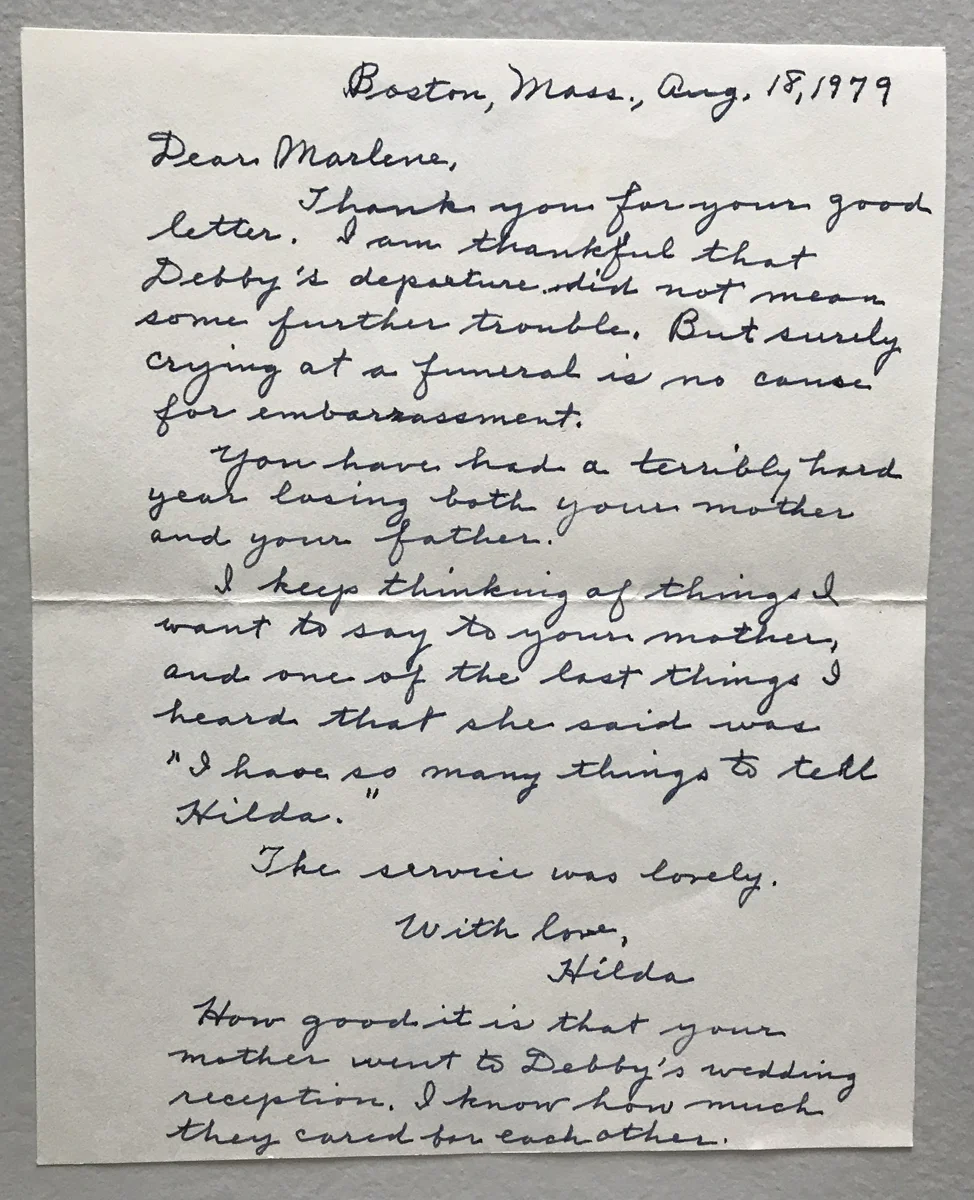 Boston, Mass., Aug. 18, 1979
Dear Marlene,
Thank you for your good
letter. I am thankful that
Debby's departure did not mean
some further trouble. But surely
crying at a funeral is no cause
for embarrassment.
You have had a terribly hard
year losing both your mother
and your father.
I keep thinking of things I
want to say to your mother,
and one of the last things I
heard that she said was
"I have so many things to tell
Hilda."
The service was lovely.
With love,
Hilda
How good it is that your
mother went to Debby's wedding
reception. I know how much
they cared for each other.